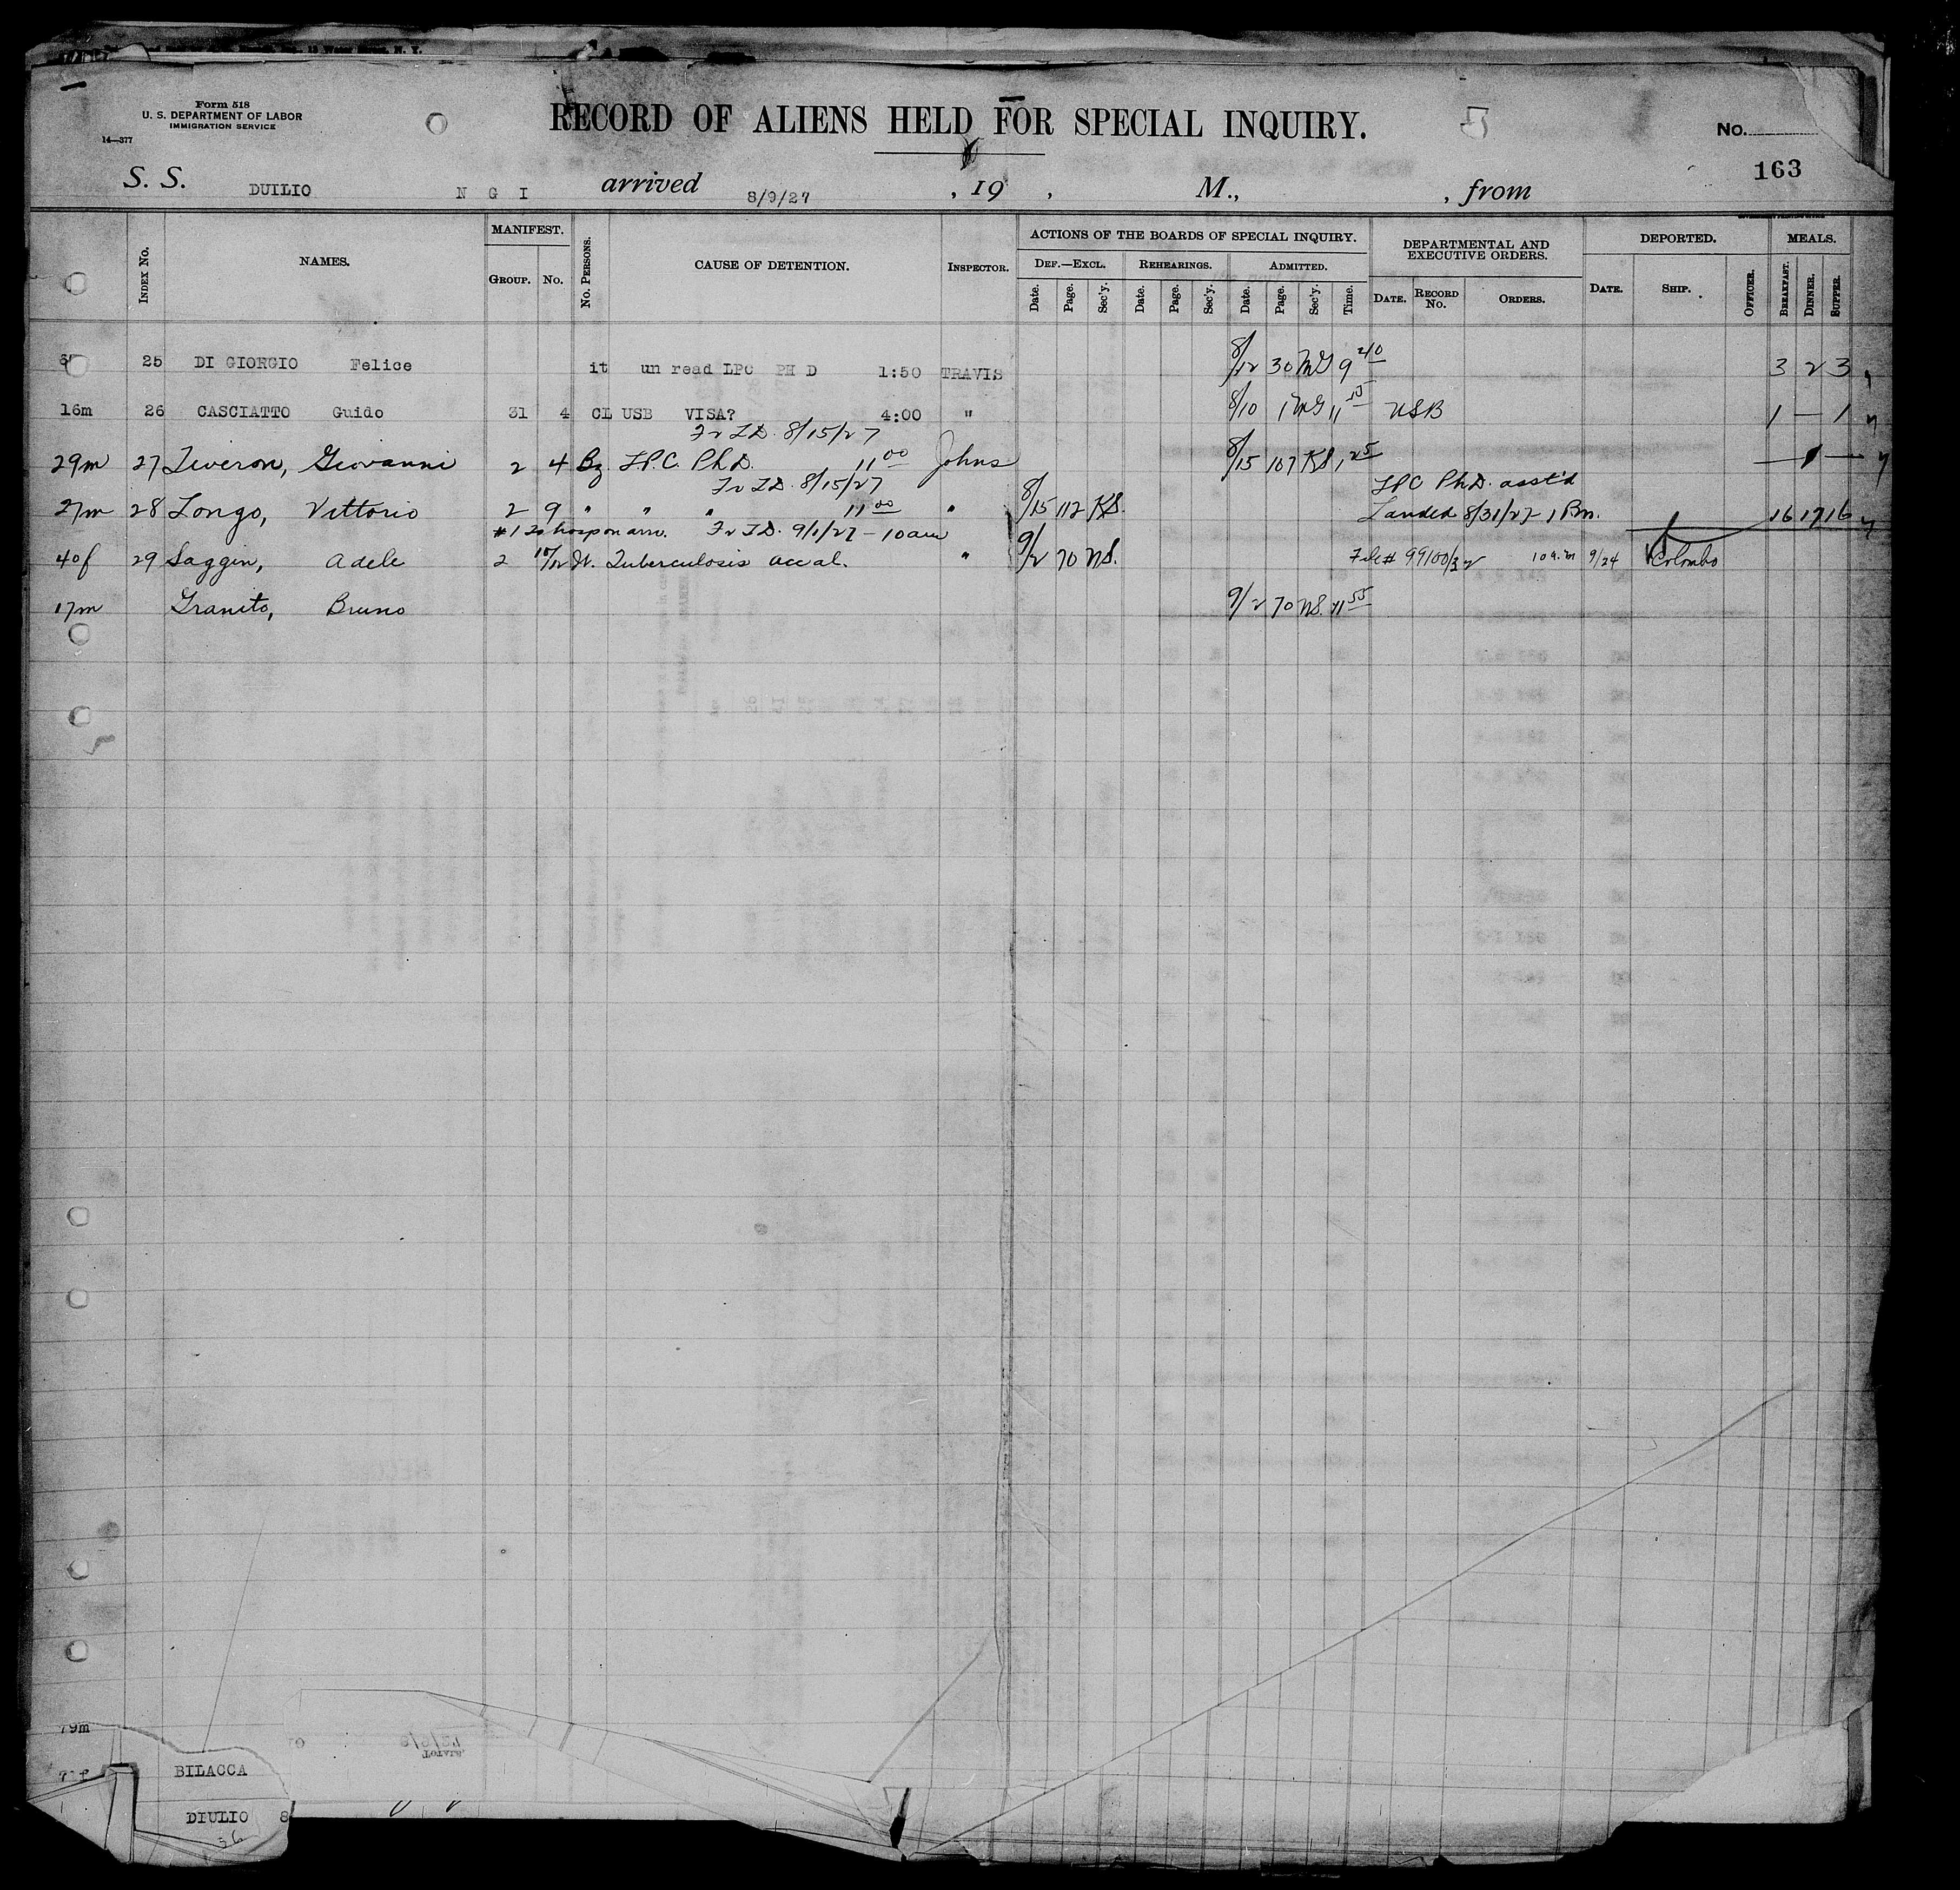 Form 518
U. S. DEPARTMENT OF LABOR
IMMIGRATION SERVICE
14—377
RECORD OF ALIENS HELD FOR SPECIAL INQUIRY.
No.
163
S. S. DUILIO N G I arrived 8/9/27 , 19 , M., , from
INDEX NO. NAMES. MANIFEST. GROUP. NO. No. PERSONS. CAUSE OF DETENTION. INSPECTOR. ACTIONS OF THE BOARDS OF SPECIAL INQUIRY. DEF.—EXCL. Date. Page. Sec'y. REHEARINGS. Date. Page. Sec'y. ADMITTED. Date. Page. Sec'y. Time. DEPARTMENTAL AND EXECUTIVE ORDERS. DATE. RECORD No. ORDERS. DEPORTED. DATE. SHIP. OFFICER. MEALS. BREAKFAST. DINNER. SUPPER.
25 DI GIORGIO Felice it un read LPC PH D 1:50 TRAVIS 8/12 30 MG 9 40 3 2 3
16m 26 CASCIATTO Guido 31 4 CL USB VISA? 4:00 " 8/10 1 MG 11 55 USB 1 — 1
Fr TD. 8/15/27
29m 27 Tiveron, Giovanni 2 4 Bz. LP.C. Ph.D. 11 00 Johns 8/15 107 KS 1 25 — 1 —
Fr TD. 8/15/27
LPC PhD. asst'd
27m 28 Longo, Vittorio 2 9 " " " 11 00 " 8/15 112 KS. Landed 8/31/27 1 Pm. 16 17 16
#1 to hosp on arr. Fr TD. 9/1/27 - 10 am
40f 29 Saggin, Adele 2 It. Tuberculosis " 9/2 70 NS. File # 99100/32 9/24 Colombo
17m Granito, Bruno 9/2 70 NS. 11 55
79m
71f
BILACCA
DIULIO 8
36